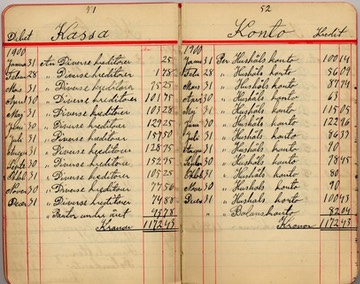 51
Debet Kassa
1900
Janua 31 An Diverse kreditorer 25
Febru 28 " Diverse kreditorer 175
Mars 31 " Diverse kreditorer 7525
April 30 " Diverse kreditorer 10175
Maj 31 " Diverse kreditorer 10328
Juni 30 " Diverse kreditorer 12925
Juli 31 " Diverse kreditorer 15750
31 " Diverse kreditorer 12875
Septe 30 " Diverse kreditorer 15275
Oktob 31 " Diverse kreditorer 10525
Novem 30 " Diverse kreditorer 7750
Decem 31 " Diverse kreditorer 7488
" Räntor under året 4578
Kronor 117243
52
Konto Kredit
1900
Janua 31 Per Hushåls konto 10014
Febru 28 " Hushåls konto 5609
Mars 31 " Hushåls konto 8774
April 30 " Hushåls konto 63
Maj 31 " Hushåls konto 11505
Juni 30 " Hushåls konto 12296
Juli 31 " Hushåls konto 8637
30 " Hushåls konto 90
30 " Hushåls konto 7845
Oktob 31 " Hushåls konto 80
Nove 30 " Hushåls konto 90
Dece 31 " Hushåls konto 10043
" Balanskonto 8204
Kronor 117243